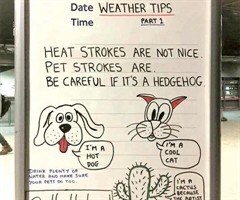 Date WEATHER TIPS
Time PART 1
HEAT STROKES ARE NOT NICE.
PET STROKES ARE.
BE CAREFUL IF IT'S A HEDGEHOG.
I'M A
HOT
DOG
I'M A
COOL
CAT
DRINK PLENTY OF
WATER AND MAKE SURE
YOUR PETS DO TOO.
I'M A
CACTUS
BECAUSE
THE ARTIST